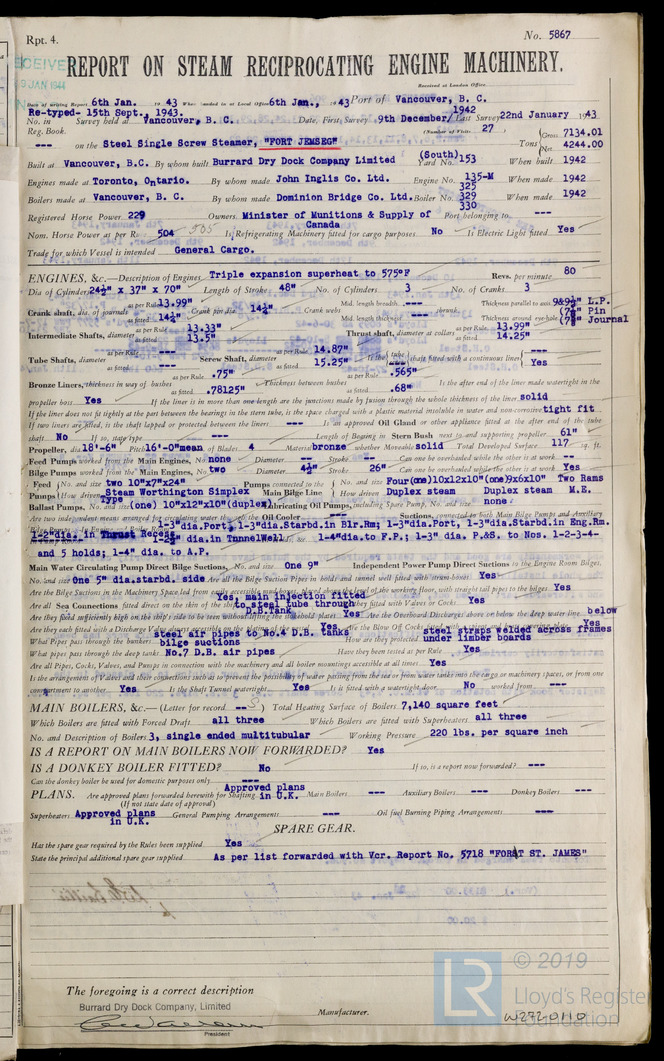 Rpt. 4.
No. 5867
REPORT ON STEAM RECIPROCATING ENGINE MACHINERY.
Received at London Office
Date of writing Report 6th Jan. 1943 When handed in at Local Office 6th Jan., 1943 Port of Vancouver, B. C.
Re-typed- 15th Sept., 1943.
No. in Survey held at Vancouver, B. C. Date, First Survey 9th December/1942 Last Survey 22nd January 1943
Reg. Book. (Number of Visits 27
--- on the Steel Single Screw Steamer, "FORT JEMSEG" Tons Gross 7134.01 Net 4244.00
Built at Vancouver, B.C. By whom built Burrard Dry Dock Company Limited (South) Yard No. 153 When built 1942
Engines made at Toronto, Ontario. By whom made John Inglis Co. Ltd. Engine No. 135-M When made 1942
Boilers made at Vancouver, B.C. By whom made Dominion Bridge Co. Ltd. Boiler No. 325 329 330 When made 1942
Registered Horse Power 229 Owners Minister of Munitions & Supply of Canada Port belonging to ---
Nom. Horse Power as per Rule 504 505 Is Refrigerating Machinery fitted for cargo purposes No Is Electric Light fitted Yes
Trade for which Vessel is intended General Cargo.
ENGINES, &c.—Description of Engines Triple expansion superheat to 575°F Revs. per minute 80
Dia of Cylinders 24½" x 37" x 70" Length of Stroke 48" No. of Cylinders 3 No. of Cranks 3
Crank shaft, dia. of journals as per Rule 13.99" as fitted 14¼" Crank pin dia. 14¼" Crank webs Mid. length breadth --- Mid. length thickness --- shrunk, Thickness parallel to axis 9&9½" L.P. Thickness around eye-hole (7⅜" Pin (7⅛" Journal
Intermediate Shafts, diameter as per Rule 13.33" as fitted 13.5" Thrust shaft, diameter at collars as per Rule 13.99" as fitted 14.25"
Tube Shafts, diameter as per Rule --- as fitted --- Screw Shaft, diameter as per Rule 14.87" as fitted 15.25" Is the tube screw shaft fitted with a continuous liner --- Yes
Bronze Liners, thickness in way of bushes as per Rule .75" as fitted .78125" Thickness between bushes as per Rule .565" as fitted .68" Is the after end of the liner made watertight in the
propeller boss Yes If the liner is in more than one length are the junctions made by fusion through the whole thickness of the liner solid
If the liner does not fit tightly at the part between the bearings in the stern tube, is the space charged with a plastic material insoluble in water and non-corrosive tight fit
If two liners are fitted, is the shaft lapped or protected between the liners --- Is an approved Oil Gland or other appliance fitted at the after end of the tube
shaft No If so, state type --- Length of Bearing in Stern Bush next to and supporting propeller 61"
Propeller, dia. 18'-6" Pitch 16'-0" mean No. of Blades 4 Material bronze whether Moveable solid Total Developed Surface 117 sq. ft.
Feed Pumps worked from the Main Engines, No. none Diameter --- Stroke --- Can one be overhauled while the other is at work --
Bilge Pumps worked from the Main Engines, No. two Diameter 4½" Stroke 26" Can one be overhauled while the other is at work Yes
Feed Pumps No. and size two 10"x7"x24" How driven Steam Worthington Simplex Type Pumps connected to the Main Bilge Line No. and size Four(one)10x12x10"(one)9x6x10" Two Rams How driven Duplex steam Duplex steam M.E.
Ballast Pumps, No. and size (one) 10"x12"x10"(duplex) Lubricating Oil Pumps, including Spare Pump, No. and size none
Are two independent means arranged for circulating water through the Oil Cooler --- Suctions, connected to both Main Bilge Pumps and Auxiliary
1-3"dia.Port, 1-3"dia.Starbd.in Blr.Rm; 1-3"dia.Port, 1-3"dia.Starbd.in Eng.Rm.
1-2"dia. in Thrust Recess, dia.in TunnelWell 1-4"dia.to F.P.; 1-3" dia. P.&S. to Nos. 1-2-3-4-
and 5 holds; 1-4" dia. to A.P.
Main Water Circulating Pump Direct Bilge Suctions, No. and size One 9" Independent Power Pump Direct Suctions to the Engine Room Bilges,
No. and size One 5" dia.starbd. side Are all the Bilge Suction Pipes in holds and tunnel well fitted with strum-boxes Yes
Are the Bilge Suctions in the Machinery Space led from easily accessible mud boxes, placed above the level of the working floor, with straight tail pipes to the bilges Yes
Are all Sea Connections fitted direct on the skin of the ship Yes, main injection fitted to steel tube through D.B.Tank Are they fitted with Valves or Cocks Yes
Are they fixed sufficiently high on the ship's side to be seen without lifting the stokehold plates Yes Are the Overboard Discharges above or below the deep water line below
Are they each fitted with a Discharge Valve always accessible on the plating of the vessel Yes Are the Blow Off Cocks fitted with a spigot and brass covering plate Yes
What Pipes pass through the bunkers steel air pipes to No.4 D.B. tanks bilge suctions How are they protected steel straps welded across frames under limber boards
What pipes pass through the deep tanks No.7 D.B. air pipes Have they been tested as per Rule Yes
Are all Pipes, Cocks, Valves, and Pumps in connection with the machinery and all boiler mountings accessible at all times Yes
Is the arrangement of Valves and their connections such as to prevent the possibility of water passing from the sea or from water tanks into the cargo or machinery spaces, or from one
compartment to another Yes Is the Shaft Tunnel watertight Yes Is it fitted with a watertight door No worked from ---
MAIN BOILERS, &c.— (Letter for record -- ) Total Heating Surface of Boilers 7,140 square feet
Which Boilers are fitted with Forced Draft all three Which Boilers are fitted with Superheaters all three
No. and Description of Boilers 3, single ended multitubular Working Pressure 220 lbs. per square inch
IS A REPORT ON MAIN BOILERS NOW FORWARDED? Yes
IS A DONKEY BOILER FITTED? No If so, is a report now forwarded? ---
Can the donkey boiler be used for domestic purposes only ---
PLANS. Are approved plans forwarded herewith for Shafting Approved plans in U.K. Main Boilers --- Auxiliary Boilers --- Donkey Boilers ---
(If not state date of approval)
Superheaters Approved plans in U.K. General Pumping Arrangements --- Oil fuel Burning Piping Arrangements ---
SPARE GEAR.
Has the spare gear required by the Rules been supplied Yes
State the principal additional spare gear supplied As per list forwarded with Vcr. Report No. 5718 "FORT ST. JAMES"
The foregoing is a correct description
Burrard Dry Dock Company, Limited
Manufacturer.
President
© 2019
LR
Lloyd's Register
Foundation
W272-0110